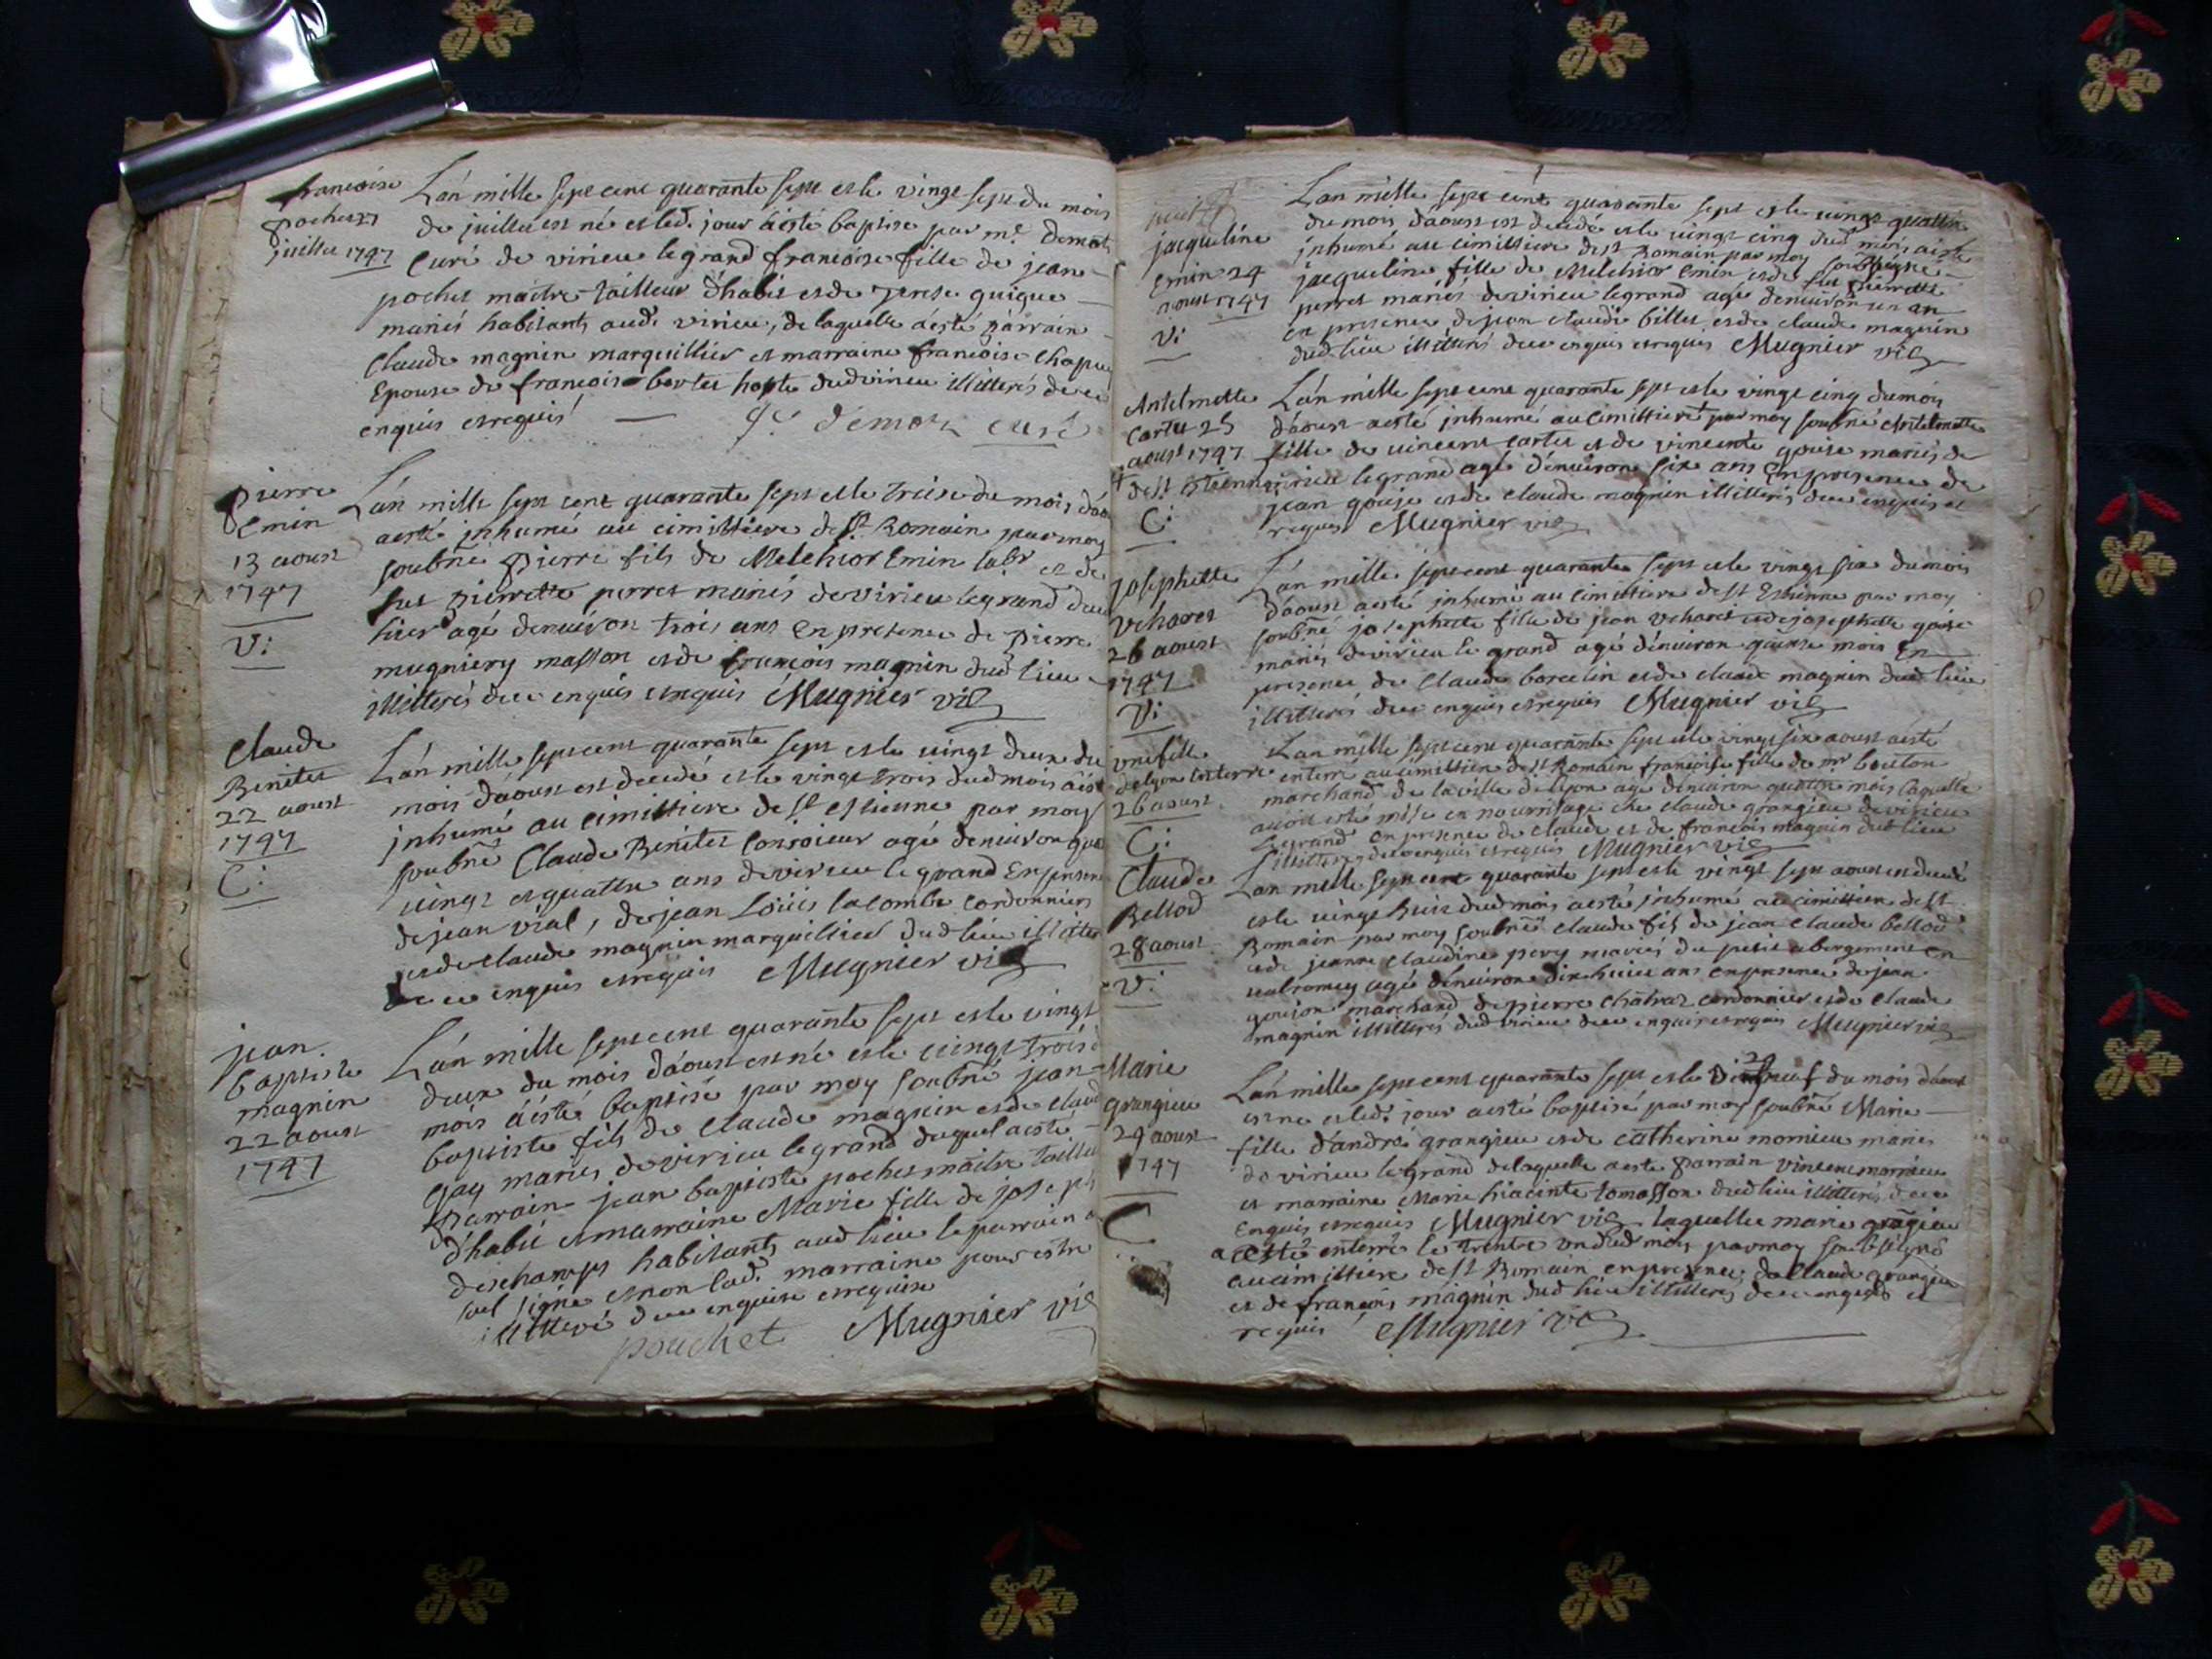 francoise
pochet 27
juillet 1747
L'an mille sept cent quarante sept et le vingt sept du mois
de juillet est né et led. jour a esté baptisé par mre demot
Curé de virieu le grand francoise fille de jean
pochet maitre tailleur d'habit et de
mariés habitants aud. virieu, de laquelle a esté parrain
Claude magnin marguillier et marraine francoise Chapu
Epouse de francois bortet hoste dud virieu illitérés de ce
enquis et requis curé
pierre
Emin
13 aoust
1747
V:
L'an mille sept cent quarante sept et le treise du mois d'aou
a esté inhumé au cimittiere de st Romain par moy
soubné pierre fils de Melchior Emin labr et de
fut pierrette perret mariés de virieu le grand
hier agé denuiron trois ans En presence de pierre
mugniery masson et de francois magnin dud lieu
illitterés de ce enquis et requis Mugnier vic
Claude
Benitet
22 aoust
1747
C:
L'an mille sept cent quarante sept et le vingt deux du
mois d'aoust est decedé et le vingt trois dud mois a est
inhumé au cimittiere de st estienne par moy
soubné Claude Benitet Conroieur agé denuiron qua
vingt et quattre ans de virieu le grand En presen
de jean vial, de jean Loüis lacombe cordonnier
et de claude magnin marguillier dud lieu illiter
de ce enquis et requis Mugnier vic
jean
baptiste
magnin
22 aoust
1747
L'an mille sept cent quarante sept et le vingt
deux du mois d'aoust est né et le vingt trois
mois a esté baptisé par moy soubné jean
baptiste fils de Claude magnin et de claud
Gay mariés de virieu le grand duquel a esté
parrain jean baptiste pochet maitre tailleu
d'habit et marraine Marie fille de joseph
deschamps habitants aud lieu le parrain a
signé et non lad. marraine pour estre
illitteré de ce enquise et requise
pouchet Mugnier vic
jacqueline
Emin 24
aoust 1747
V:
L'an mille sept cent quarante sept et le vingt quattre
du mois d'aoust est decedé et le vingt cinq dud mois a esté
inhumé au cimittiere de st Romain par moy soubsigné
jacqueline fille de Melchior Emin et de fut pierrette
perret mariés de virieu le grand agé denuiron un an
En presence de jean claude billet et de claude magnin
dud lieu illitterés de ce enquis et requis Mugnier vic
Antelmette
Cartet 25
aoust 1747
L'an mille sept cent quarante sept et le vingt cinq du mois
d'aoust a esté inhumé au cimittiere par moy soubné Antelmette
fille de vincent cartet et de vincente goise mariés de
+ de st Estienne virieu le grand agé denuiron six ans En presence de
C:
jean goise et de claude magnin illitterés de ce enquis et
requis Mugnier vic
josephette
vcharet
26 aoust
1747
V:
L'an mille sept cent quarante sept et le vingt six du mois
d'aoust a esté inhumé au cimittiere de st Estienne par moy
soubné josephette fille de jean vcharet et de josephette goise
mariés de virieu le grand agé denuiron quinze mois En
presence de Claude borcelin et de claude magnin dud lieu
illitterés de ce enquis et requis Mugnier vic
une fille
de lyon enterré
26 aoust
C:
L'an mille sept cent quarante sept et le vingt six aoust a esté
enterré au cimittiere de st Romain francoise fille de mr
marchand de la ville de lyon agé denuiron quattre mois laquelle
auoit esté mise en nourrissage che claude grangieu de virieu
Legrand En presence de Claude et de francois magnin dud lieu
illitterés de ce enquis et requis Mugnier vic
Claude
Bellod
28 aoust
V:
L'an mille sept cent quarante sept et le vingt sept aoust est decedé
et le vingt huit dud mois a esté inhumé au cimittiere de st
Romain par moy soubné claude fils de jean Claude bellod
et de jeanne claudine pery mariés du petit abergement en
valromey agé denuiron dix huit ans en presence de jean
goujon marchand de pierre Chatraz cordonnier et de Claude
magnin illitterés dud virieu de ce enquis et requis Mugnier vic
Marie
grangieu
29 aoust
1747
C
L'an mille sept cent quarante sept et le 29 du mois d'aoust
est né et led. jour a esté baptisé par moy soubné Marie
fille d'andré grangieu et de catherine mornieu mariés
de virieu le grand de laquelle a esté parrain vincent mornieu
et marraine Marie hiacinte tomasson dud lieu illitterés de ce
Enquis et requis Mugnier vic laquelle marie grangieu
a esté enterré le trente un dud mois par moy soubsigné
au cimittiere de st Romain en presence de Claude grangieu
et de francois magnin dud lieu illitterés de ce enquis et
requis Mugnier vic